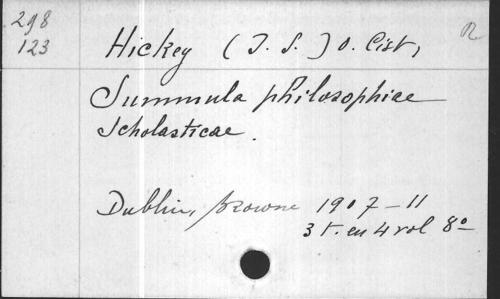 298
123
Hickey (J. S.) O. Cist,
R
Summula philosophiae
Scholasticae.
Dublin, Browne 1907-11
3 t. en 4 vol 8º